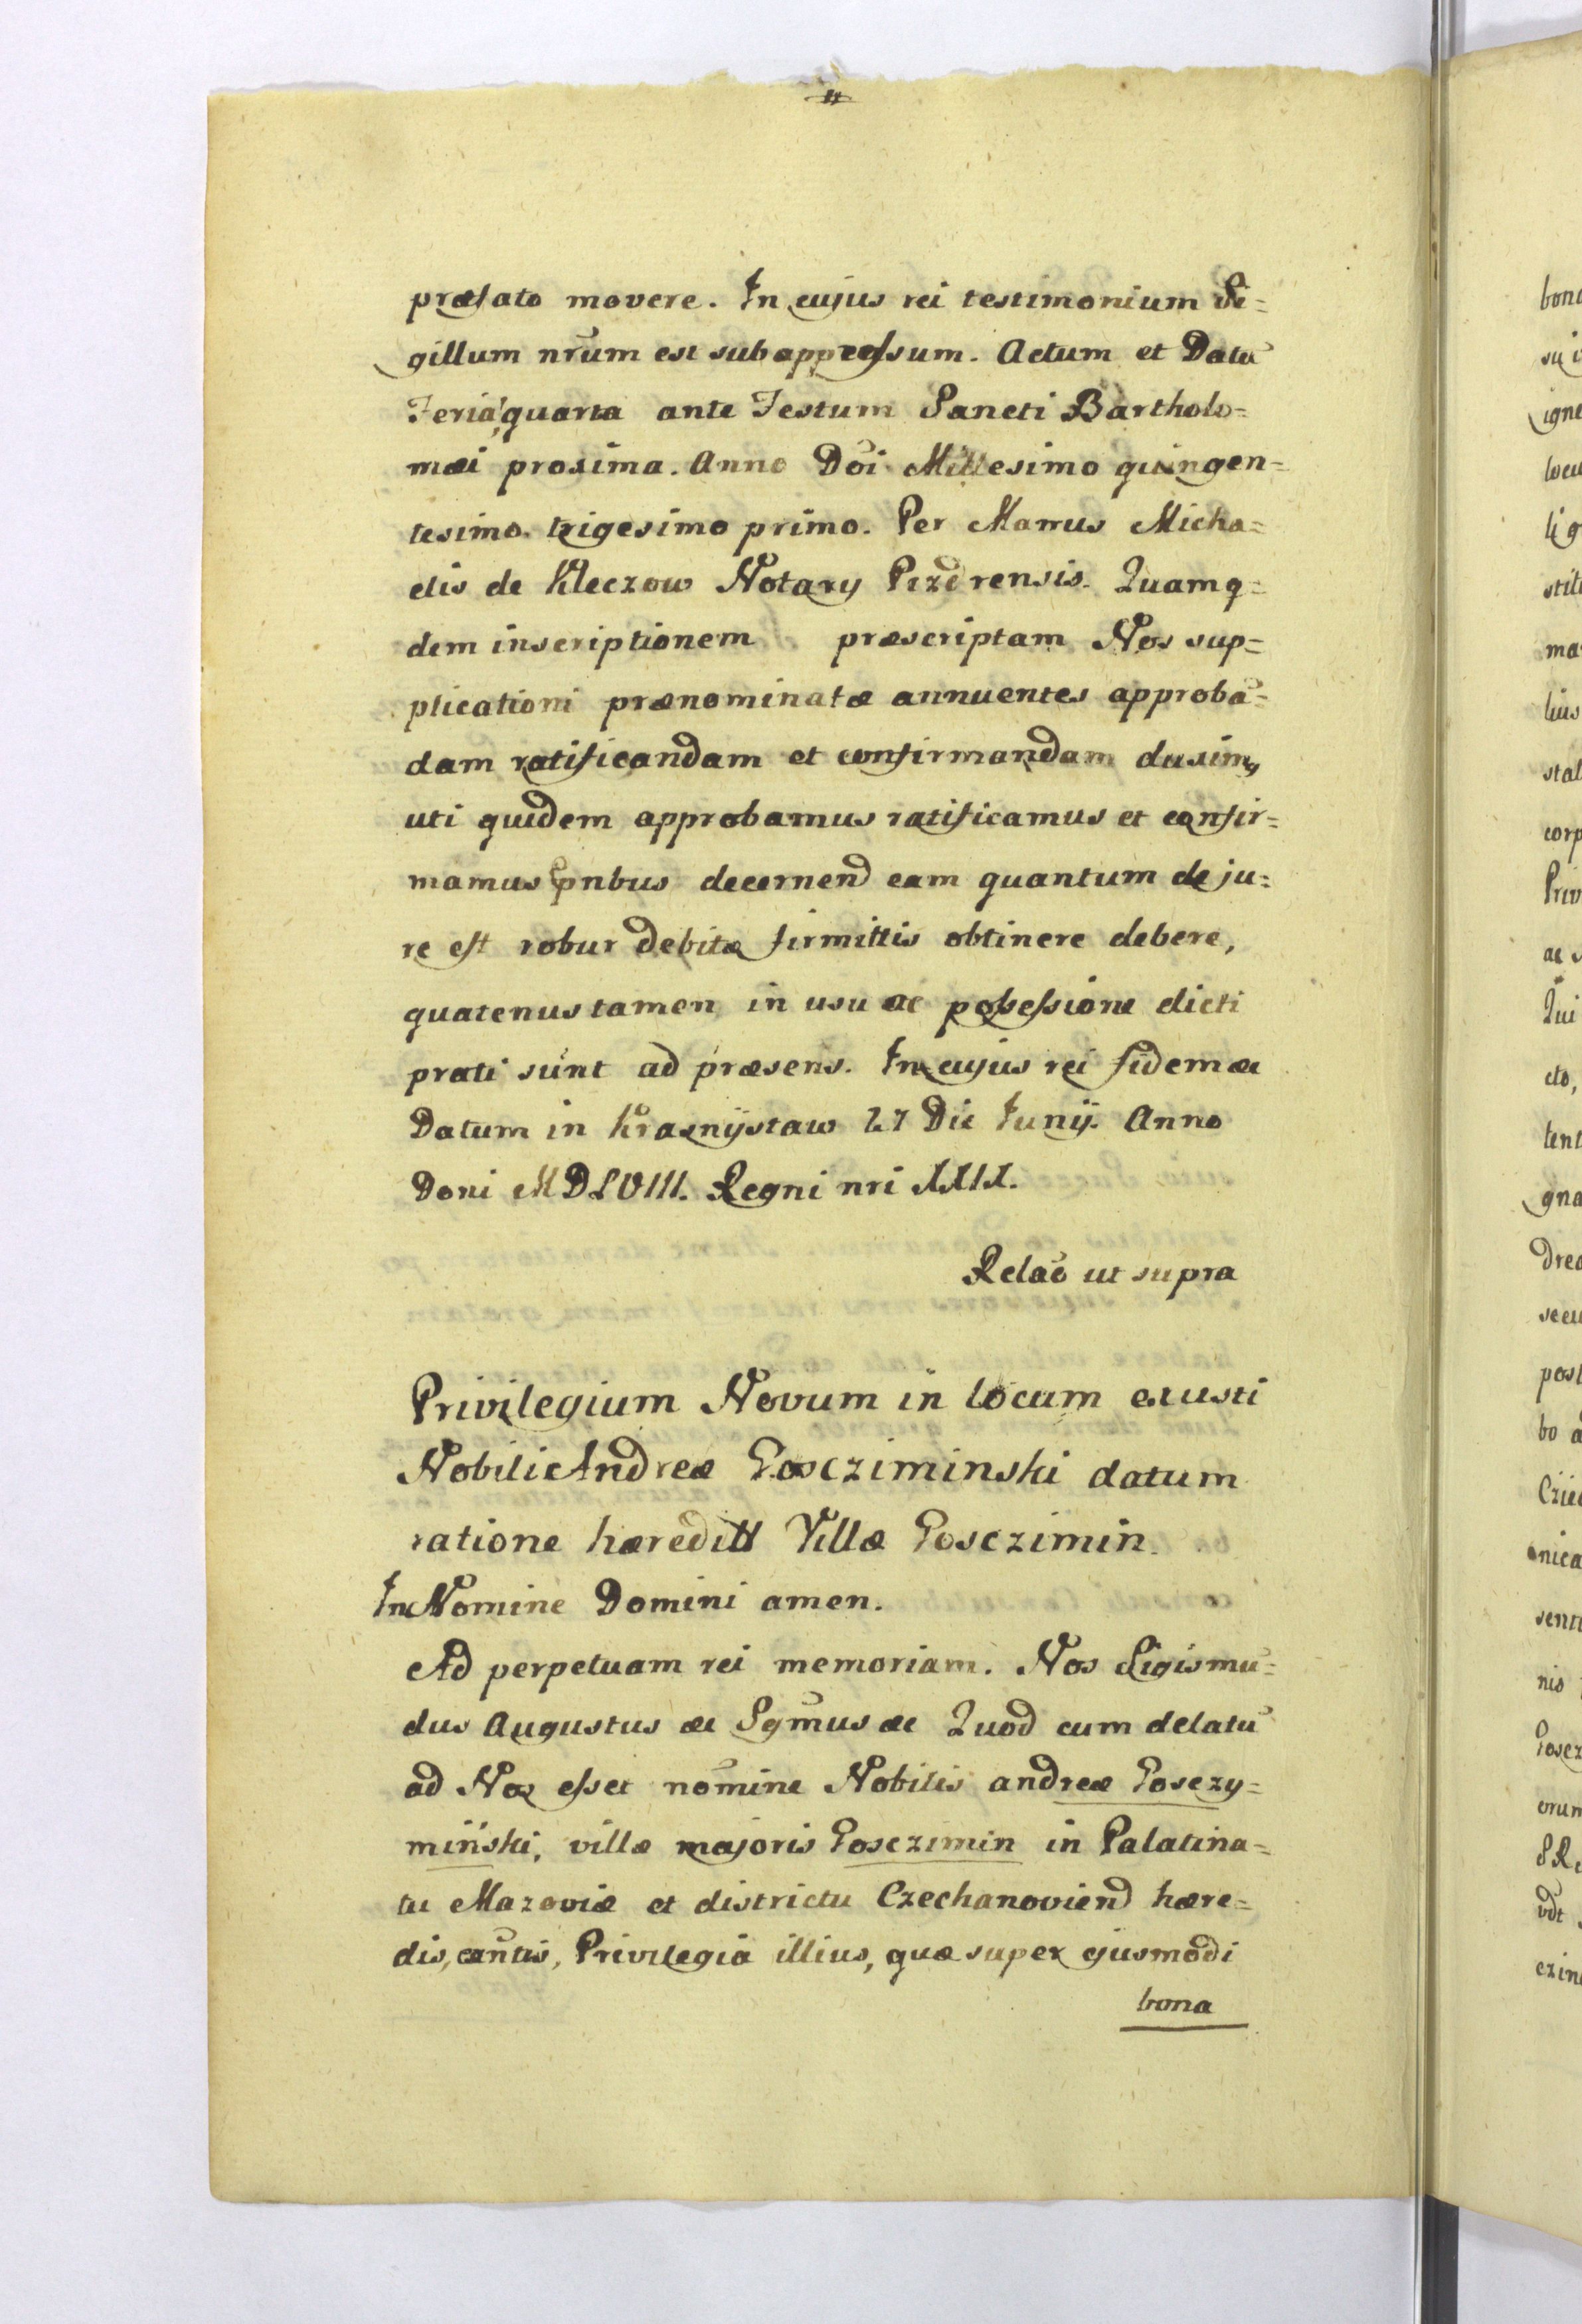 præfato movere. In cujus rei testimonium Si=
gillum nr̃um est subappressum. Actum et Datũ
Feria quarta ante Festum Sancti Bartholo=
mæi proxima. Anno Dõi Millesimo quingen=
tesimo trigesimo primo. Per Manus Micha=
elis de Kleczow Notary Pizdrensis. Quamq=
dem inscriptionem præscriptam Nos sup=
plicationi prænominatæ annuentes approbã=
dam ratificandam et confirmandam duxim9
uti quidem approbamus ratificamus et confir=
mamus pñbus decernend eam quantum de ju=
re est robur debitæ firmittis obtinere debere,
quatenus tamen in usu ac possessione dicti
prati sunt ad præsens. In cujus rei fidem &c
Datum in Krasnÿstaw 27 Die Junÿ. Anno
Doni MDLVIII. Regni nri XXIX.
Relaõ ut supra
Privilegium Novum in locum exusti
Nobili Andreæ Gosciminski datum
ratione hæreditt Villæ Posczimin.
In Nomine Domini amen.
Ad perpetuam rei memoriam. Nos Sigismũ=
dus Augustus &c Sgm̃us &c Quod cum delatũ
ad Nos esset nomine Nobilis andreæ Posczy=
miński, villæ majoris Posczimin in Palatina=
tu Mazoviæ et districtu Czechanoviend hære=
dis, Privilegia illius, quæ super ejusmodi
bona